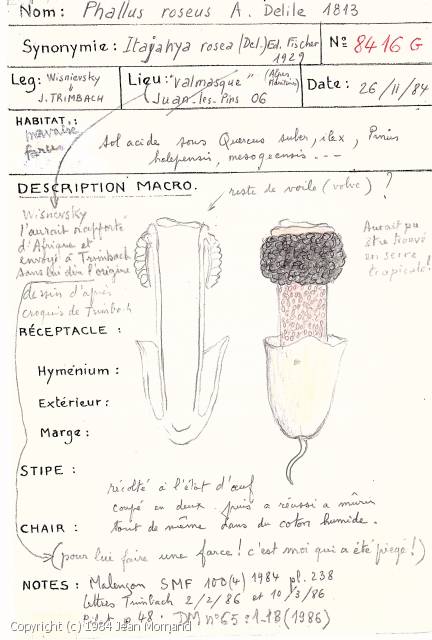 Nom: Phallus roseus A. Delile 1813
Synonymie: Itajahya rosea (Del.) Ed. Fischer
1929
N° 8416 G
Leg: Wisnievsky
J. TRIMBACH
Lieu: "Valmasque" (Alpes Maritimes)
Juan-les-Pins 06
Date: 26/11/84
HABITAT:
mauvaise
farce
sol acide sous Quercus suber, ilex, Pinus
halepensis, mesogeensis ---
DESCRIPTION MACRO.
reste de voile (volve) ?
Wisnevsky
l'aurait rapporté
d'Afrique et
envoyé à Trimbach
sans lui dire l'origine
dessin d'après
croquis de Trimbach
Aurait pu
être trouvé
en serre
tropicale!
RÉCEPTACLE :
Hyménium :
Extérieur :
Marge :
STIPE :
récolté à l'état d'œuf
coupé en deux puis a réussi a mûrir
CHAIR : tout de même dans du coton humide.
(pour lui faire une farce! c'est moi qui a été piégé!)
NOTES : Malençon SMF 100(4) 1984 pl. 238
lettres Trimbach 2/2/86 et 10/3/86
p. 48. DM n°65:1-18 (1986)
Copyright (c) 1984 Jean Mornand